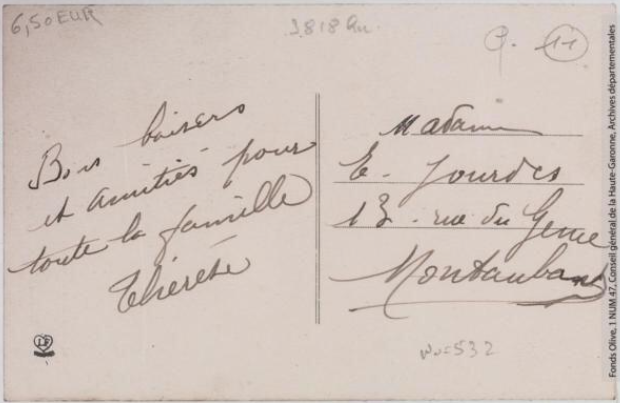 6,50 EUR
1818
11
Bons baisers
et amitiés pour
toute la famille
Thérèse
Madame
E. Jourdes
13 - rue du Génie
Montauban
532
LF
Fonds Olive, 1 NUM 47, Conseil général de la Haute-Garonne, Archives départementales